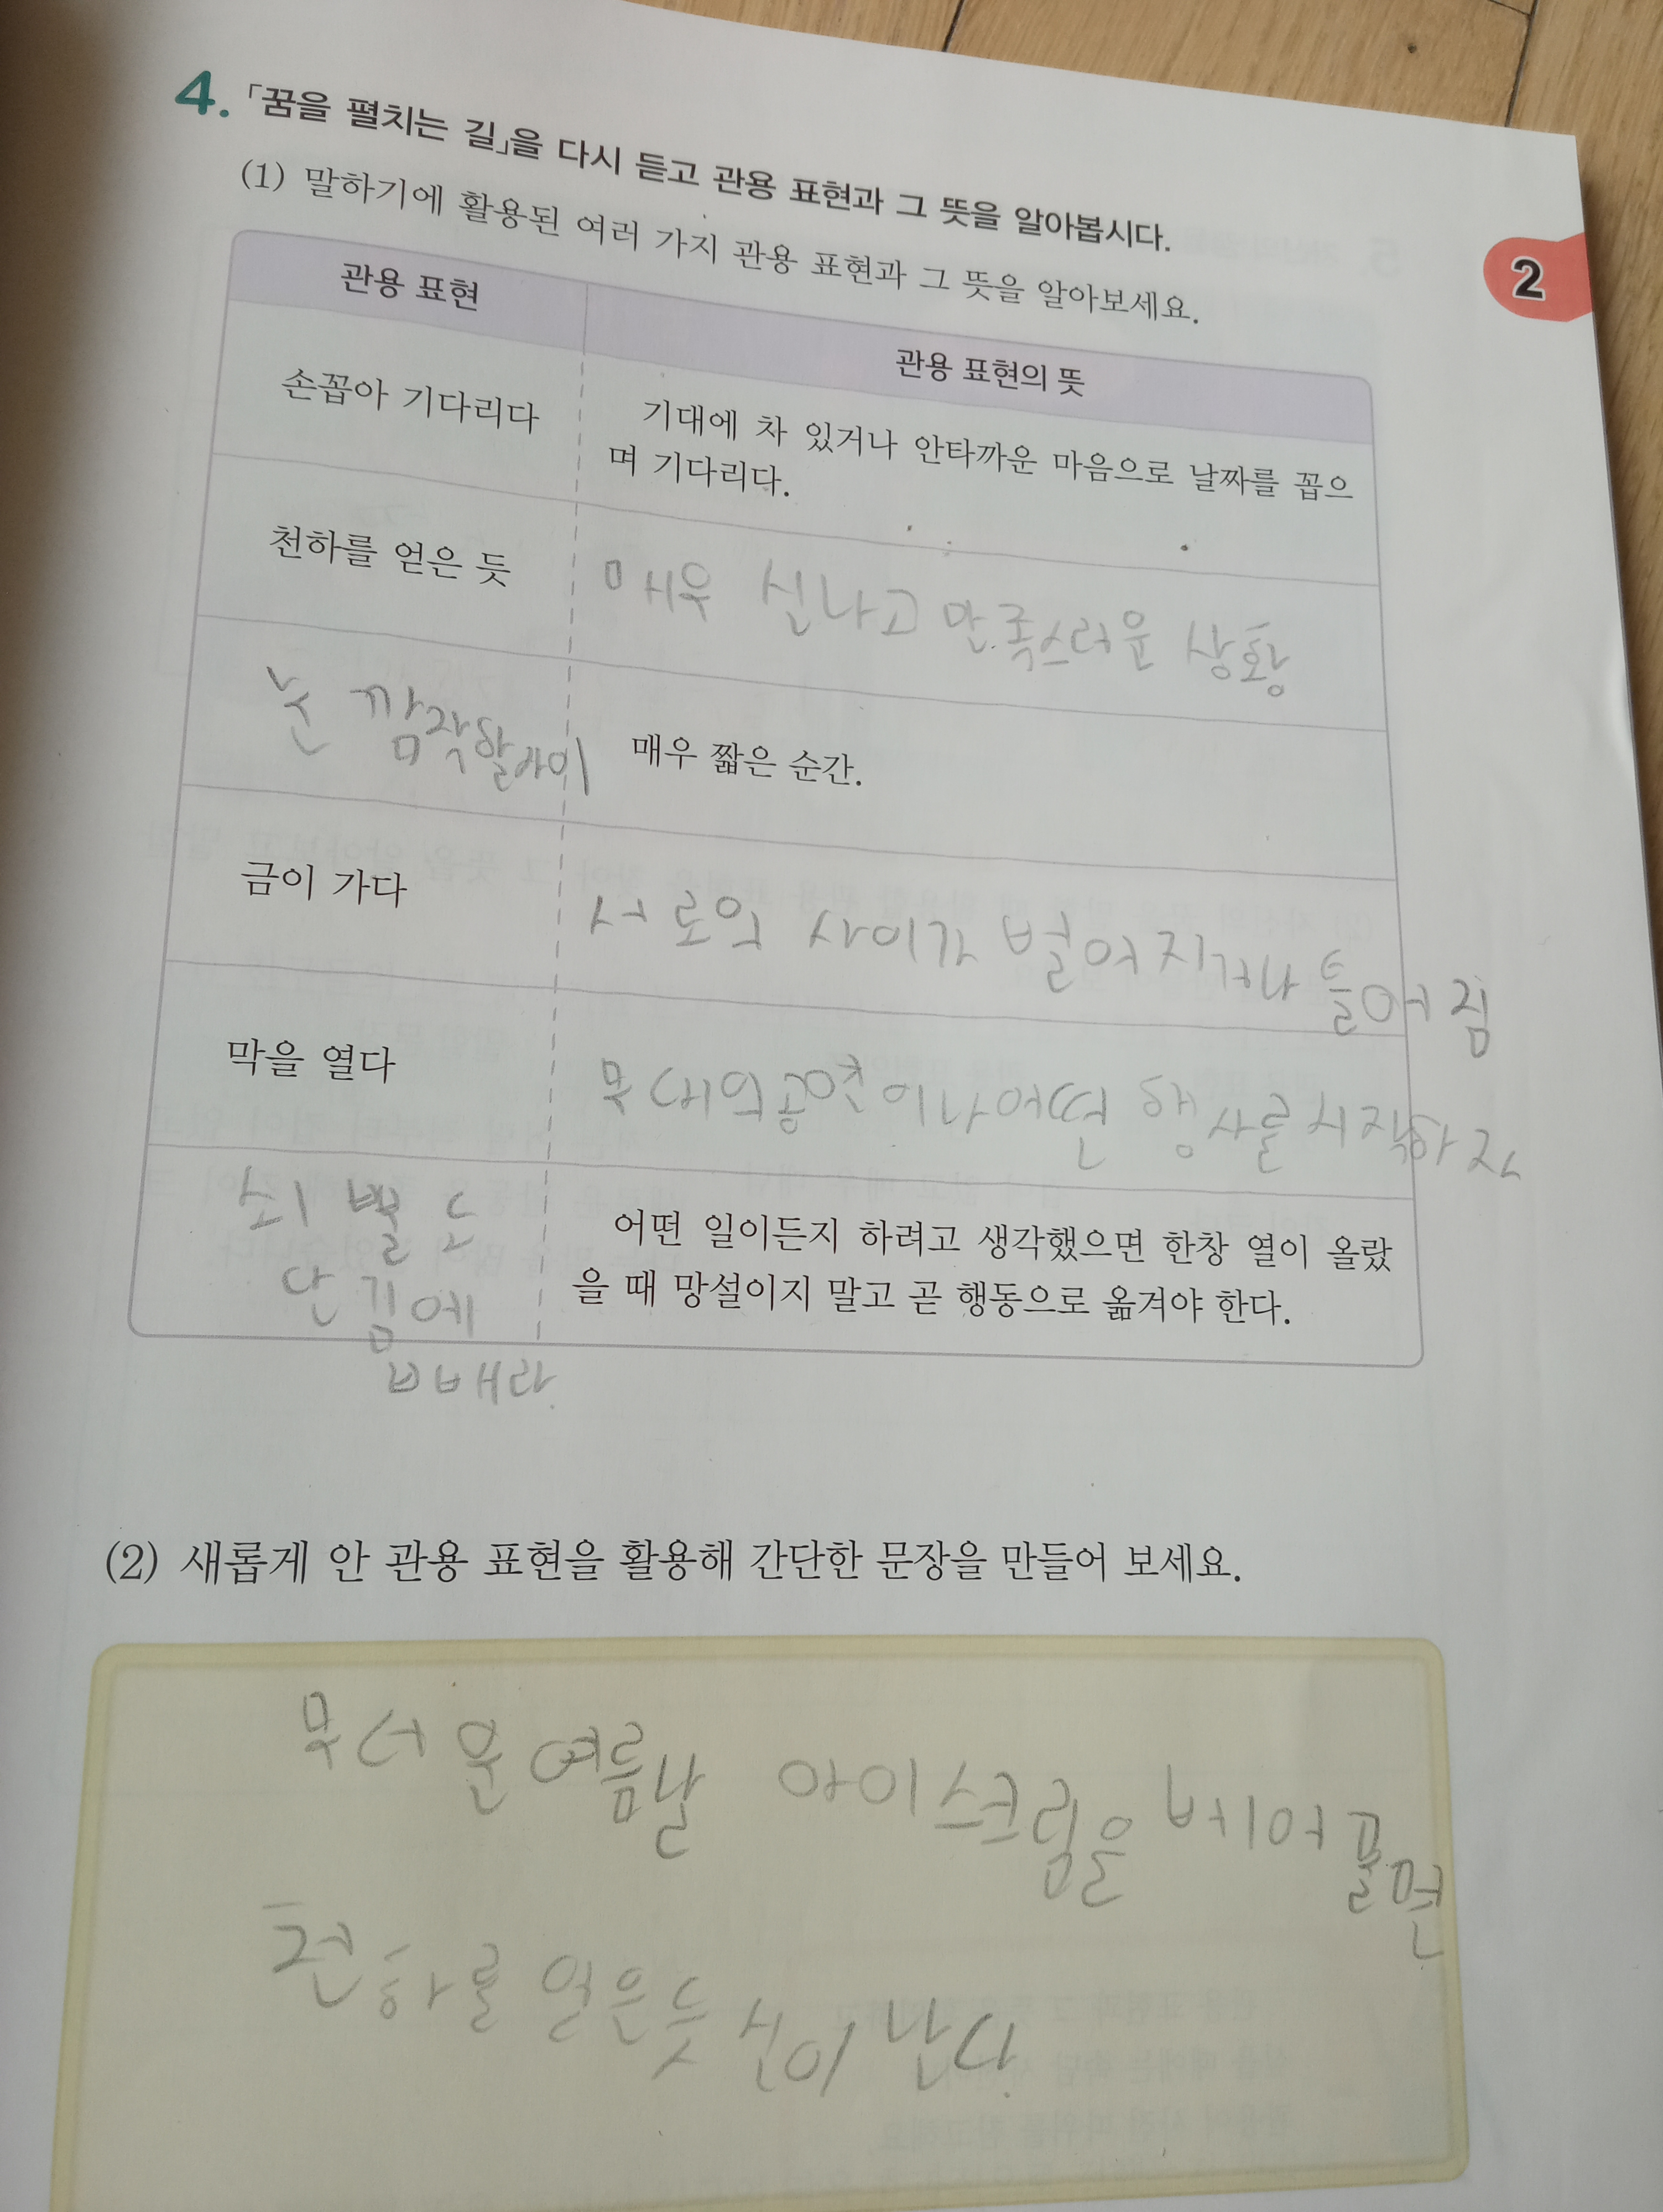 4. 「꿈을 펼치는 길」을 다시 듣고 관용 표현과 그 뜻을 알아봅시다.
(1) 말하기에 활용된 여러 가지 관용 표현과 그 뜻을 알아보세요.
2
관용 표현
관용 표현의 뜻
손꼽아 기다리다
기대에 차 있거나 안타까운 마음으로 날짜를 꼽으
며 기다리다.
천하를 얻은 듯
매우 신나고 만족스러운 상황
눈 깜작할사이
매우 짧은 순간.
금이 가다
서로의 사이가 벌어지거나 틀어짐
막을 열다
무대의공연이나어떤 행사를시작하자
쇠 뿔 도
단 김에
빼라.
어떤 일이든지 하려고 생각했으면 한창 열이 올랐
을 때 망설이지 말고 곧 행동으로 옮겨야 한다.
(2) 새롭게 안 관용 표현을 활용해 간단한 문장을 만들어 보세요.
무더운여름날 아이스크림을 베어물면
천하를 얻은듯 신이 난다.